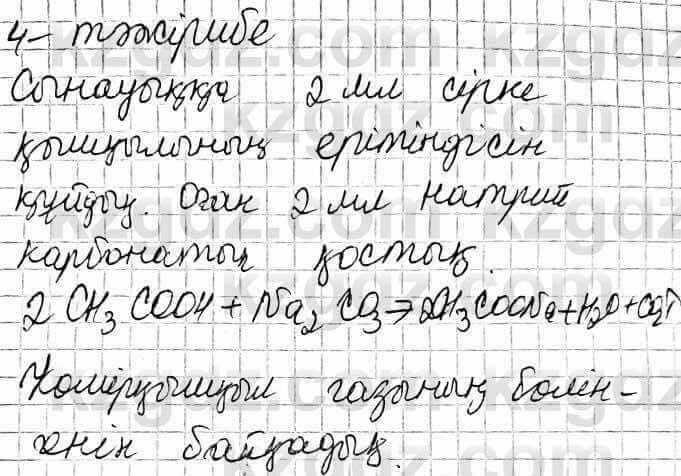 4-тәжірибе
Сынауыққа 2 мл сірке
қышқылының ерітіндісін
құйдық. Оған 2 мл натрий
карбонатын қостық.
2 CH₃COOH + Na₂CO₃ → 2CH₃COONa + H₂O + CO₂↑
Көмірқышқыл газының бөлін-
генін байқадық.